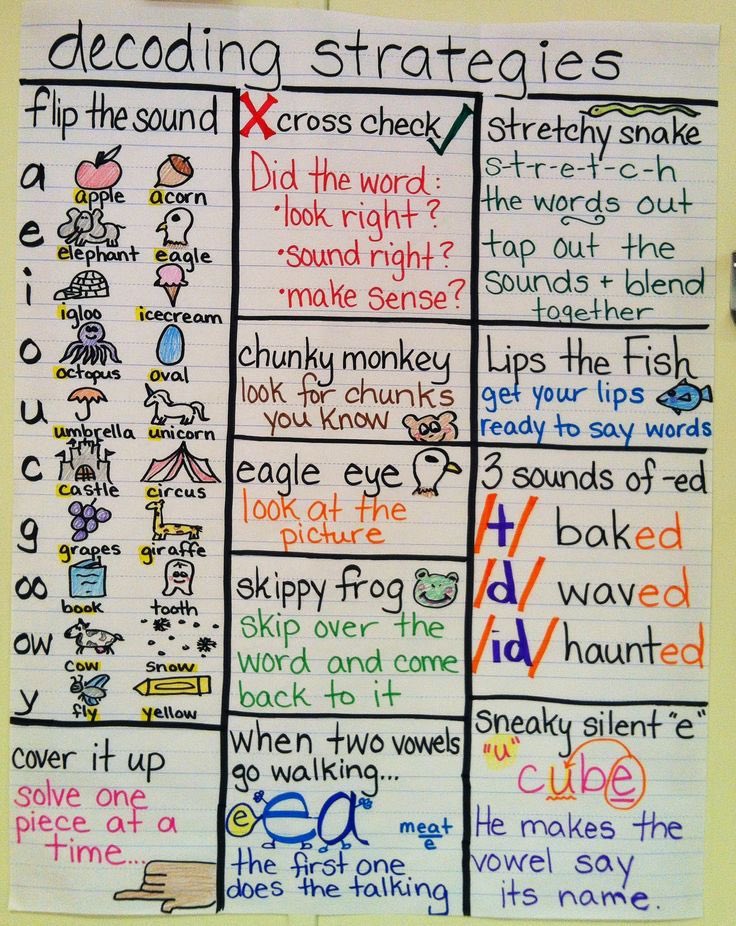 decoding strategies
flip the sound
a
apple acorn
e
elephant eagle
i
igloo icecream
o
octopus oval
u
umbrella unicorn
c
castle circus
g
grapes giraffe
oo
book tooth
ow
cow snow
y
fly yellow
cover it up
solve one
piece at a
time...
X cross check ✓
Did the word:
• look right?
• sound right?
• make sense?
chunky monkey
look for chunks
you know
eagle eye
look at the
picture
skippy frog
skip over the
word and come
back to it
when two vowels
go walking...
e ea
meat
e
the first one
does the talking
stretchy snake
s-t-r-e-t-c-h
the words out
tap out the
sounds + blend
together
Lips the Fish
get your lips
ready to say words
3 sounds of -ed
/t/ baked
/d/ waved
/id/ haunted
sneaky silent "e"
"u"
cube
He makes the
vowel say
its name.